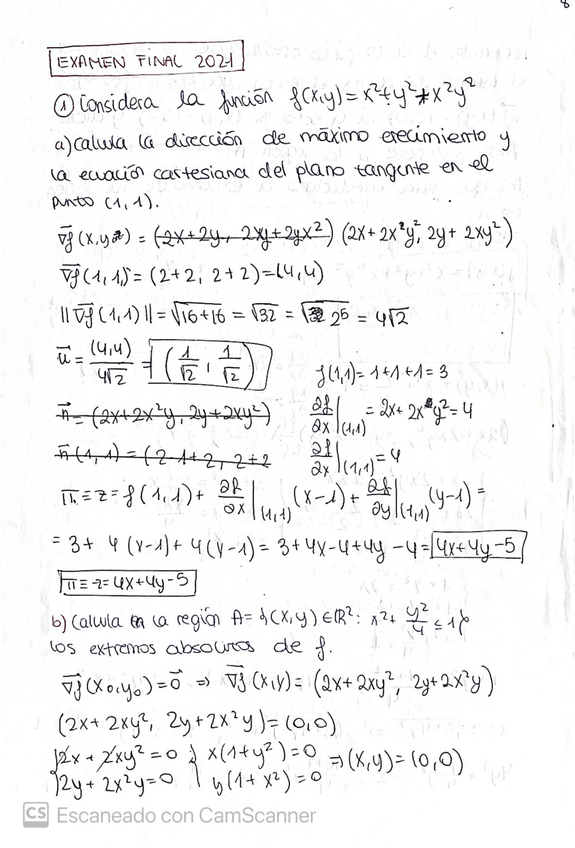 8
EXAMEN FINAL 2021
① Considera la función f(x,y)=x²+y²+x²y²
a) calcula la dirección de máximo crecimiento y
la ecuación cartesiana del plano tangente en el
punto (1,1).
∇f(x,y) = (2x+2y, 2xy+2yx²) (2x+2x²y², 2y+2xy²)
∇f(1,1) = (2+2, 2+2)=(4,4)
||∇f(1,1)|| = √16+16 = √32 = √2⁵ = 4√2
u = (4,4)/4√2 = (1/√2, 1/√2)
f(1,1)=1+1+1=3
n = (2x+2x²y, 2y+2xy²)
∂f/∂x|(1,1) = 2x+2xy²=4
n(1,1) = (2·1+2, 2+2
∂f/∂x|(1,1) =4
π ≡ z = f(1,1)+ ∂f/∂x|(1,1) (x-1)+ ∂f/∂y|(1,1) (y-1) =
= 3+ 4(x-1)+4(y-1)= 3+4x-4+4y-4= 4x+4y-5
π ≡ z=4x+4y-5
b) Calcula en la región A={(x,y)∈ℝ²: x²+ y²/4 ≤1}
los extremos absolutos de f.
∇f(x₀,y₀)=0 ⇒ ∇f(x,y)= (2x+2xy², 2y+2x²y)
(2x+2xy², 2y+2x²y)=(0,0)
2x+2xy²=0 } x(1+y²)=0 ⇒(x,y)=(0,0)
2y+2x²y=0 y(1+x²)=0
CS Escaneado con CamScanner